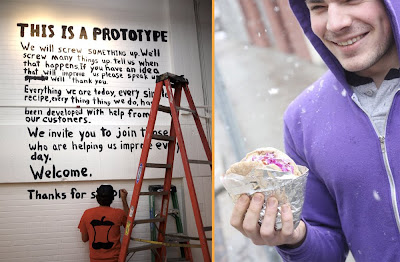 THIS IS A PROTOTYPE
We will screw SOMETHING up. We'll
screw many things up. Tell us when
that happens. if you have an idea
that will improve us please speak up
we'll thank you.
Everything we are today, every single
recipe, every thing thing we do, has
been developed with help from
our customers.
We invite you to join those
who are helping us improve every
day.
Welcome.
Thanks for